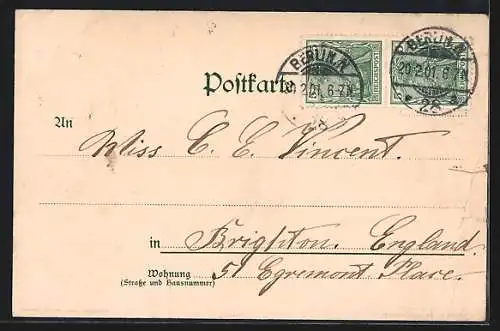 Postkarte
REICHSPOST
BERLIN, N.
20.2.01.6-7N.
* 28 a
BERLIN, N.
20.2.01.6-7N.
* 28 a
An Miss C. E. Vincent.
in Brighton. England.
Wohnung 51 Egremont Place.
(Straße und Hausnummer)